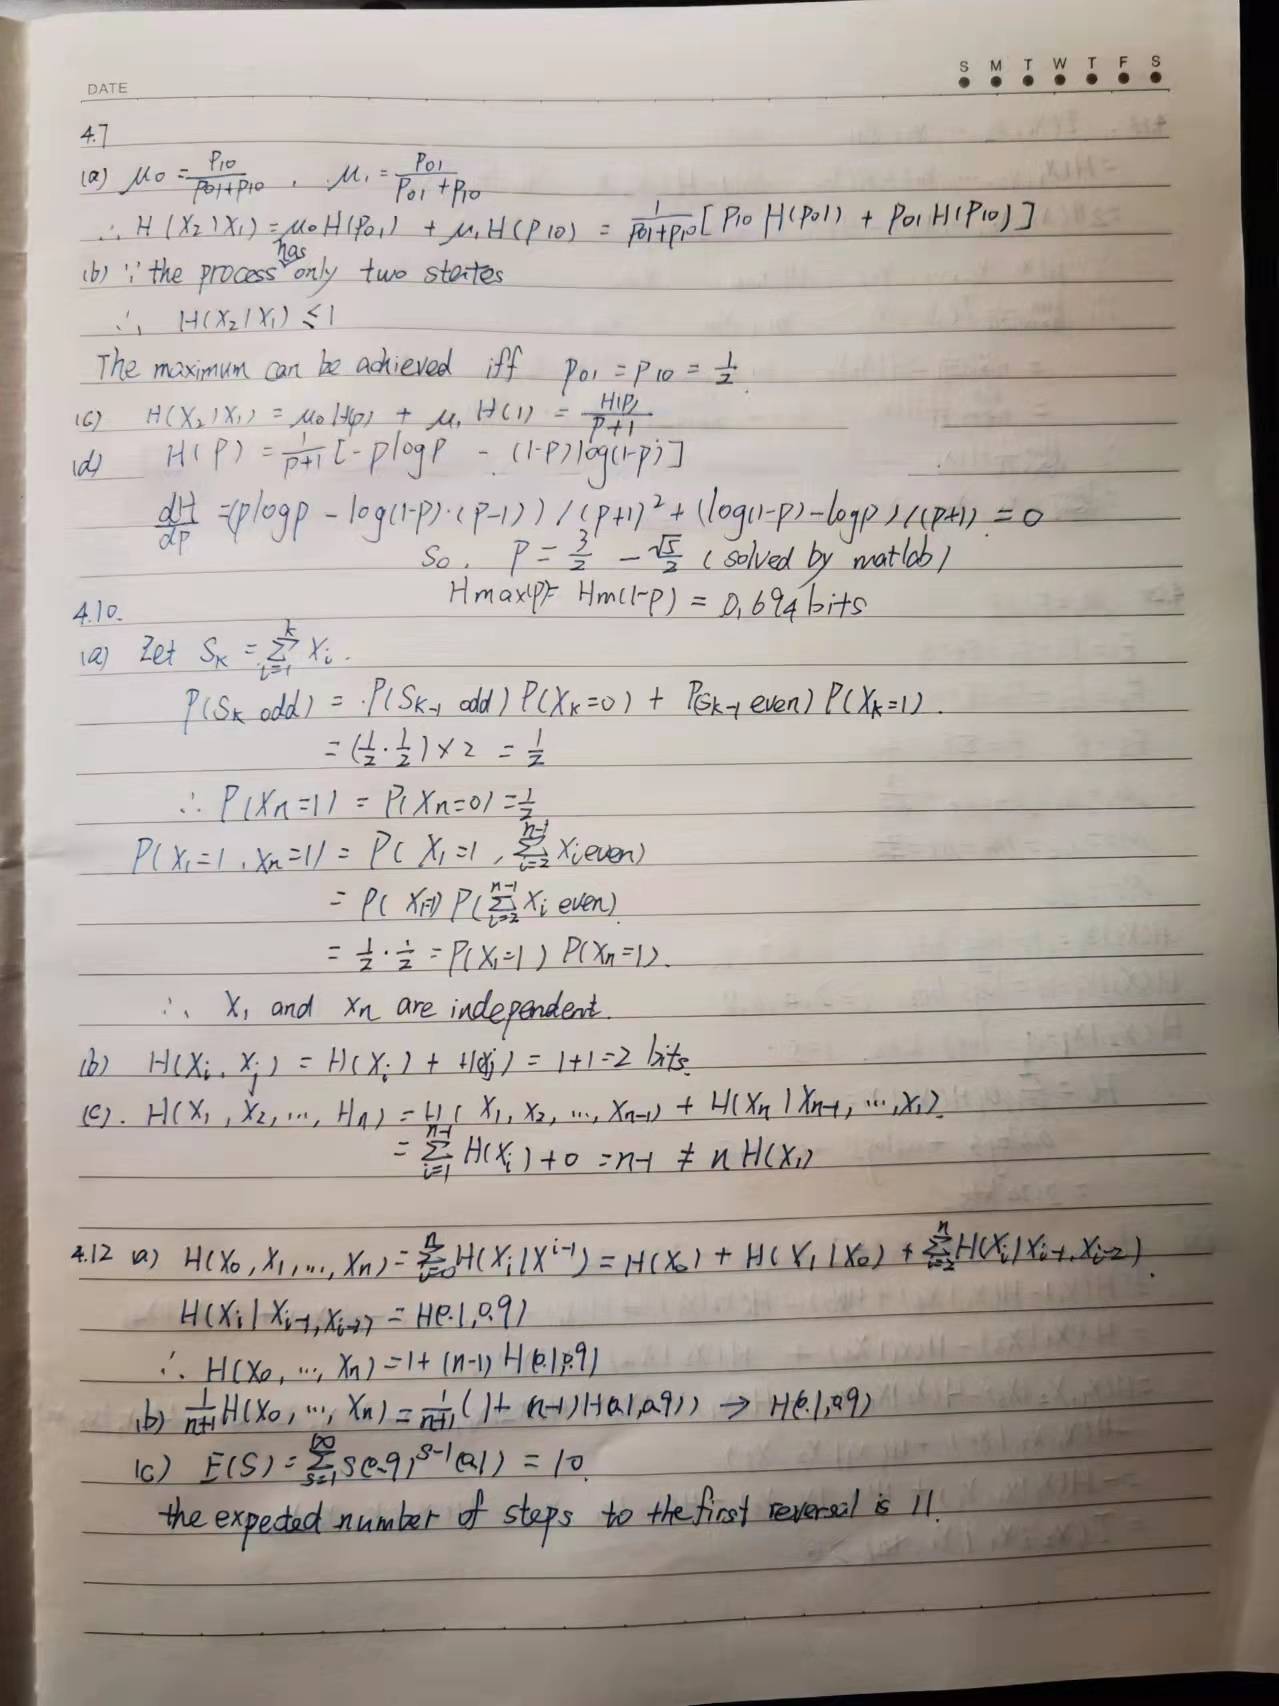 DATE
S M T W T F S
4.7
(a) μ0 = P10/(P01+P10) , μ1 = P01/(P01+P10)
∴ H(X2|X1) = μ0H(P01) + μ1H(P10) = 1/(P01+P10) [P10 H(P01) + P01 H(P10)]
(b) ∵ the process has only two states
∴ H(X2|X1) ≤ 1
The maximum can be achieved iff P01 = P10 = 1/2
(c) H(X2|X1) = μ0H(p) + μ1H(1) = H(p)/(P+1)
(d) H(P) = 1/(P+1) [-plogp - (1-p)log(1-p)]
dH/dp = (plogp - log(1-p)·(p-1))/(p+1)² + (log(1-p)-logp)/(p+1) = 0
So, P = 3/2 - √5/2 (solved by matlab)
Hmax(p)= Hm(1-p) = 0.694 bits
4.10.
(a) Let Sk = Σ_{i=1}^{k} Xi.
P(Sk odd) = P(Sk-1 odd) P(Xk=0) + P(Sk-1 even) P(Xk=1).
= (1/2 · 1/2) × 2 = 1/2
∴ P(Xn=1) = P(Xn=0) = 1/2
P(X1=1, Xn=1) = P(X1=1, Σ_{i=2}^{n-1} Xi even)
= P(X1=1) P(Σ_{i=2}^{n-1} Xi even)
= 1/2 · 1/2 = P(X1=1) P(Xn=1).
∴ X1 and Xn are independent.
(b) H(Xi, Xj) = H(Xi) + H(Xj) = 1+1=2 bits.
(c). H(X1, X2, ..., Hn) = H(X1, X2, ..., Xn-1) + H(Xn|Xn-1, ..., X1).
= Σ_{i=1}^{n-1} H(Xi) + 0 = n-1 ≠ n H(X1)
4.12 a) H(X0, X1, ..., Xn) = Σ_{i=0}^{n} H(Xi|X^{i-1}) = H(X0) + H(X1|X0) + Σ_{i=2}^{n} H(Xi|Xi-1, Xi-2).
H(Xi|Xi-1, Xi-2) = H(0.1, 0.9)
∴ H(X0, ..., Xn) = 1 + (n-1) H(0.1, 0.9)
(b) 1/(n+1) H(X0, ..., Xn) = 1/(n+1) (1 + (n-1)H(0.1, 0.9)) → H(0.1, 0.9)
(c) E(S) = Σ_{s=1}^{∞} s(0.9)^{s-1}(0.1) = 10.
the expected number of steps to the first reversal is 11.